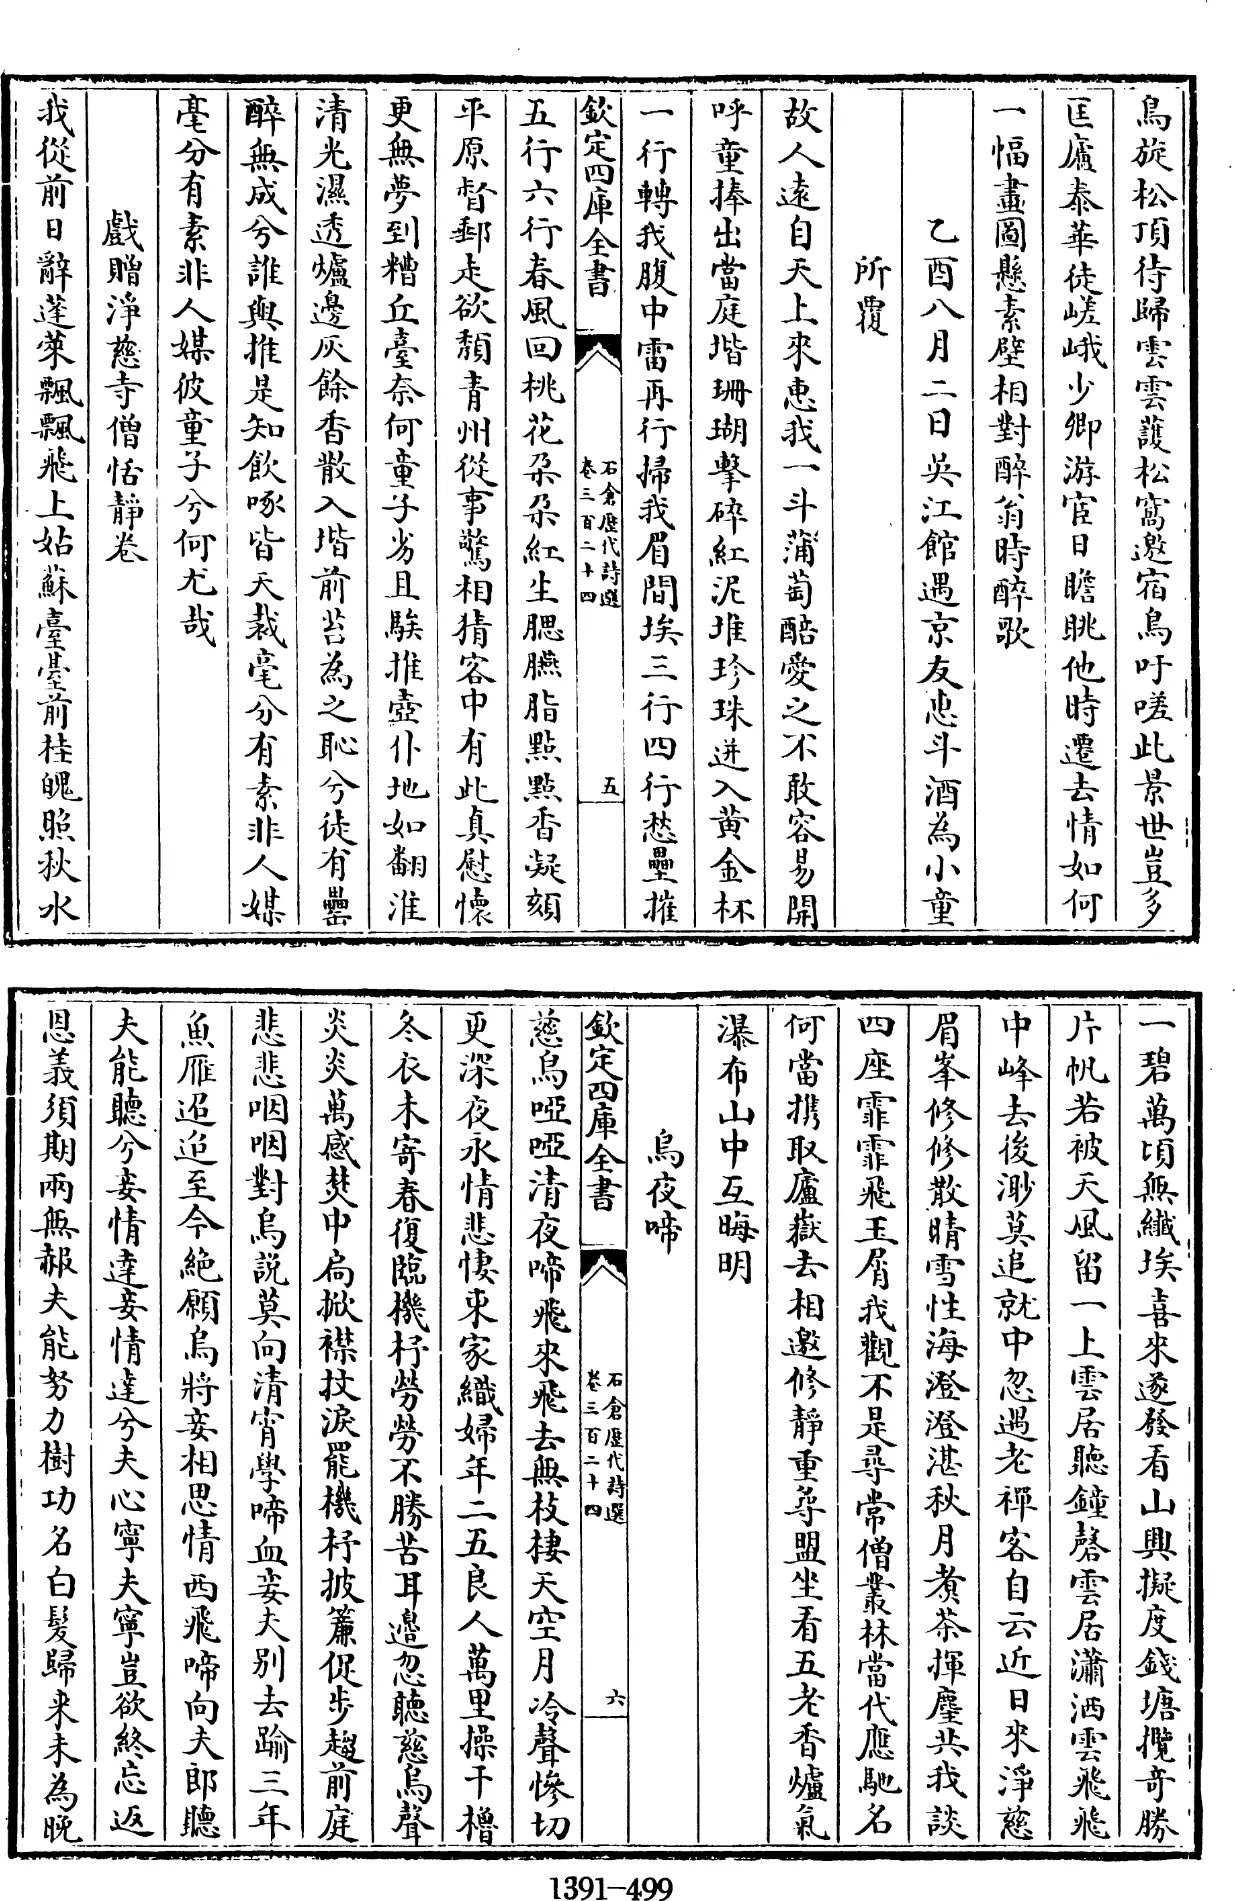 鳥旋松頂待歸雲雲護松窩邀宿鳥吁嗟此景世豈多
匡廬泰華徒嵯峨少卿游宦日瞻眺他時遷去情如何
一幅畫圖懸素壁相對醉翁時醉歌
乙酉八月二日吳江館遇京友惠斗酒為小童
所覆
故人遠自天上來惠我一斗蒲萄醅愛之不敢容易開
呼童捧出當庭堦珊瑚擊碎紅泥堆珍珠迸入黄金杯
一行轉我腹中雷再行掃我眉間埃三行四行愁壘摧
欽定四庫全書
石倉歷代詩選
卷三百二十四
五
五行六行春風回桃花朵朵紅生腮臙脂點點香凝頦
平原督郵走欲頽青州從事驚相猜客中有此真慰懷
更無夢到糟丘臺奈何童子劣且騃推壺仆地如翻淮
清光濕透爐邊灰餘香散入堦前苔為之恥兮徒有罍
醉無成兮誰與推是知飲啄皆天裁毫分有素非人媒
毫分有素非人媒彼童子兮何尤哉
戲贈淨慈寺僧恬靜卷
我從前日辭蓬萊飄飄飛上姑蘇臺臺前桂魄照秋水
一碧萬頃無纖埃喜來遂發看山興擬度錢塘攬竒勝
片帆若被天風留一上雲居聽鐘磬雲居瀟洒雲飛飛
中峰去後渺莫追就中忽遇老禪客自云近日來淨慈
眉峯修修散晴雪性海澄澄湛秋月煑茶揮麈共我談
四座霏霏飛玉屑我觀不是尋常僧叢林當代應馳名
何當携取廬嶽去相邀修靜重尋盟坐看五老香爐氣
瀑布山中互晦明
烏夜啼
欽定四庫全書
石倉歷代詩選
卷三百二十四
六
慈烏啞啞清夜啼飛來飛去無枝棲天空月冷聲慘切
更深夜永情悲悽東家織婦年二五良人萬里操干櫓
冬衣未寄春復臨機杼勞勞不勝苦耳邉忽聽慈烏聲
炎炎萬感焚中扃掀襟抆淚罷機杼披簾促步趨前庭
悲悲咽咽對烏説莫向清宵學啼血妾夫别去踰三年
魚雁迢迢至今絶願烏將妾相思情西飛啼向夫郎聽
夫能聽兮妾情達妾情達兮夫心寧夫寧豈欲終忘返
恩義須期兩無赧夫能努力樹功名白髪歸来未為晚
1391-499